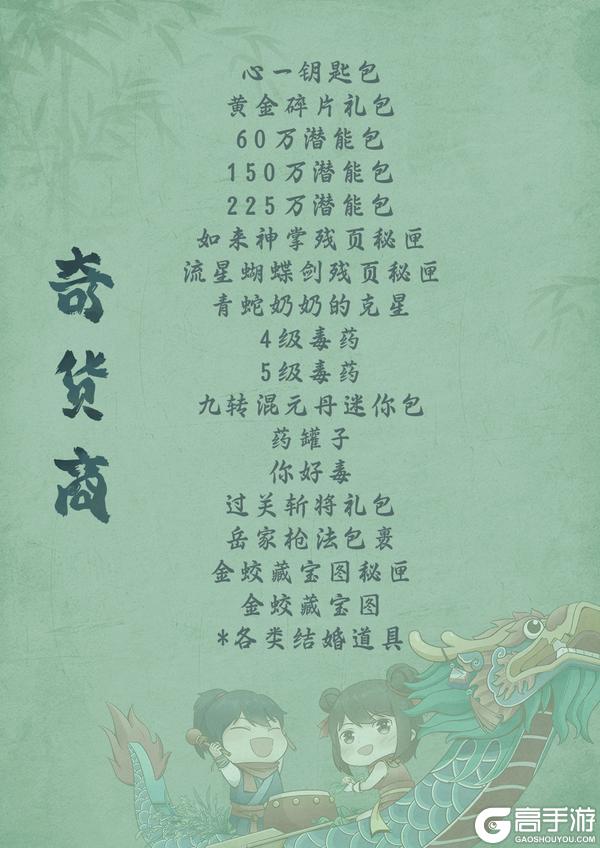 奇货商
心一钥匙包
黄金碎片礼包
60万潜能包
150万潜能包
225万潜能包
如来神掌残页秘匣
流星蝴蝶剑残页秘匣
青蛇奶奶的克星
4级毒药
5级毒药
九转混元丹迷你包
药罐子
你好毒
过关斩将礼包
岳家枪法包裹
金蛟藏宝图秘匣
金蛟藏宝图
*各类结婚道具
高手游
GAOSHOUYOU.COM